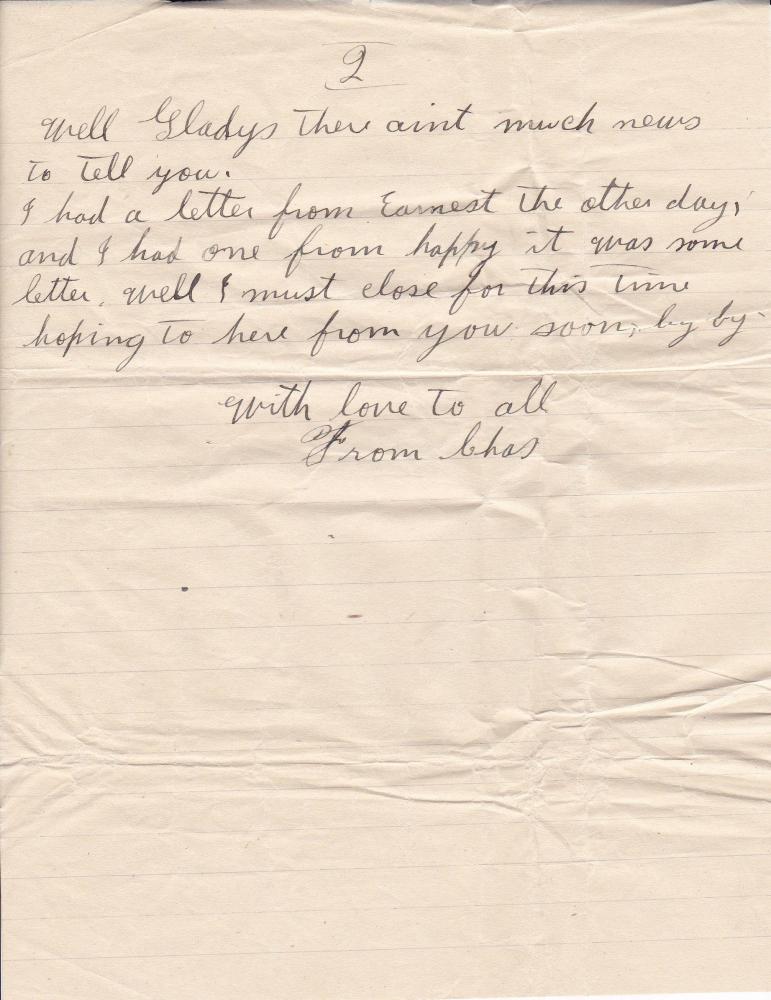 2
Well Gladys there aint much news
to tell you.
I had a letter from Earnest the other day,
and I had one from happy it was some
letter. well I must close for this time
hoping to here from you soon, by by-
With love to all
From Chas